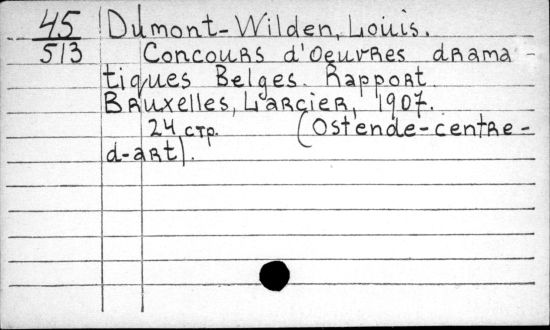 45 Dumont-Wilden, Louis.
513 Concours d'Oeuvres drama-
tiques Belges. Rapport.
Bruxelles, Larcier, 1907.
24 стр. (Ostende-centre-
d-art).